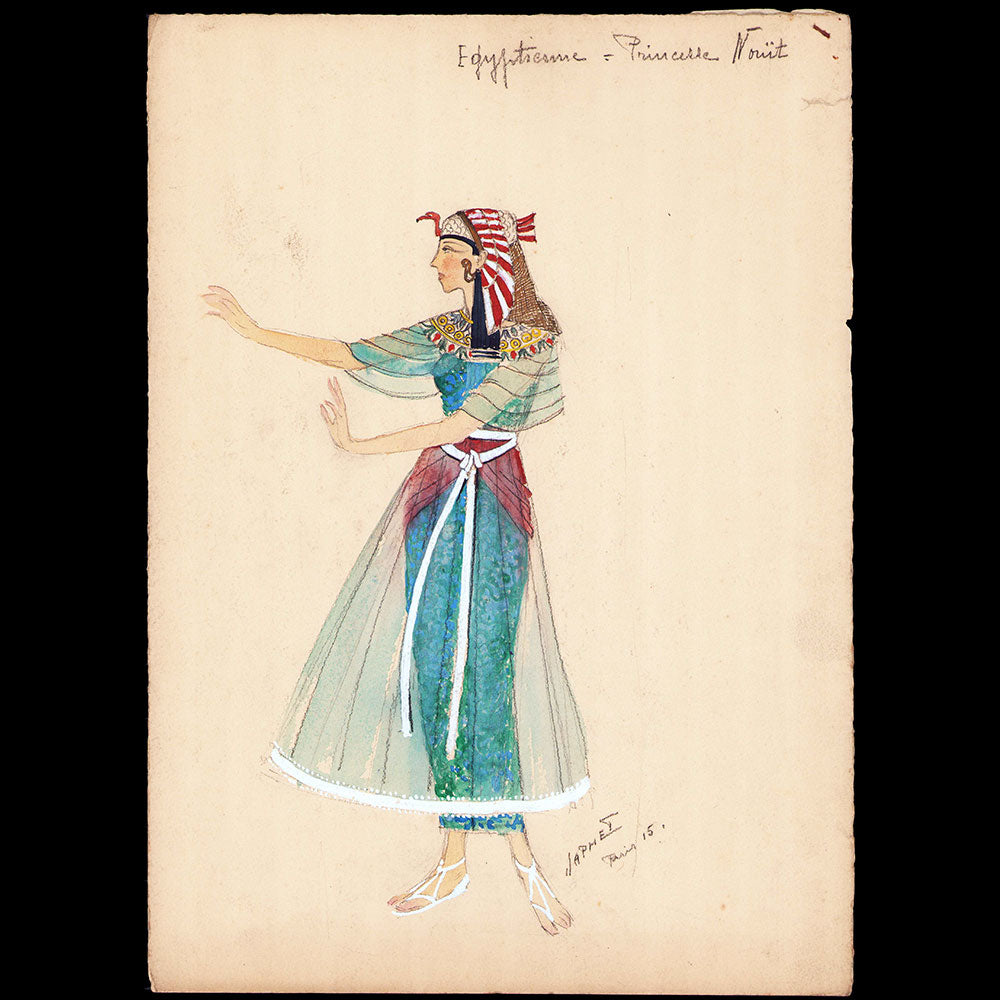 Egyptienne = Princesse Nouït
JAPHET
Paris 15.